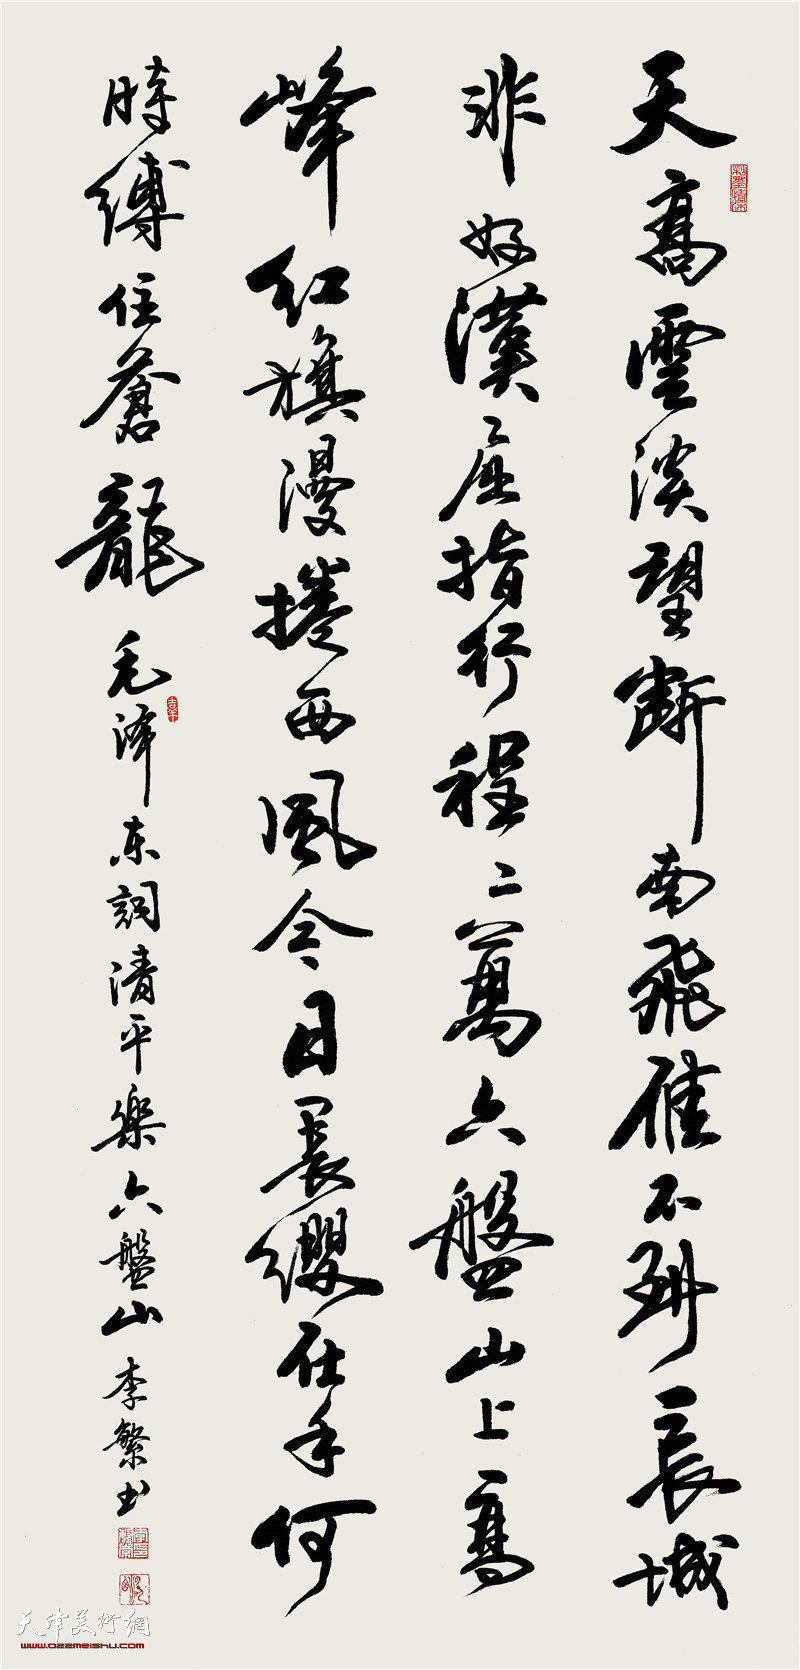 天高雲淡望斷南飛雁不到長城
非好漢屈指行程二萬六盤山上高
峰紅旗漫捲西風今日長纓在手何
時縛住蒼龍
毛泽东詞清平樂六盤山李繁书
天津美術網
www.022meishu.com